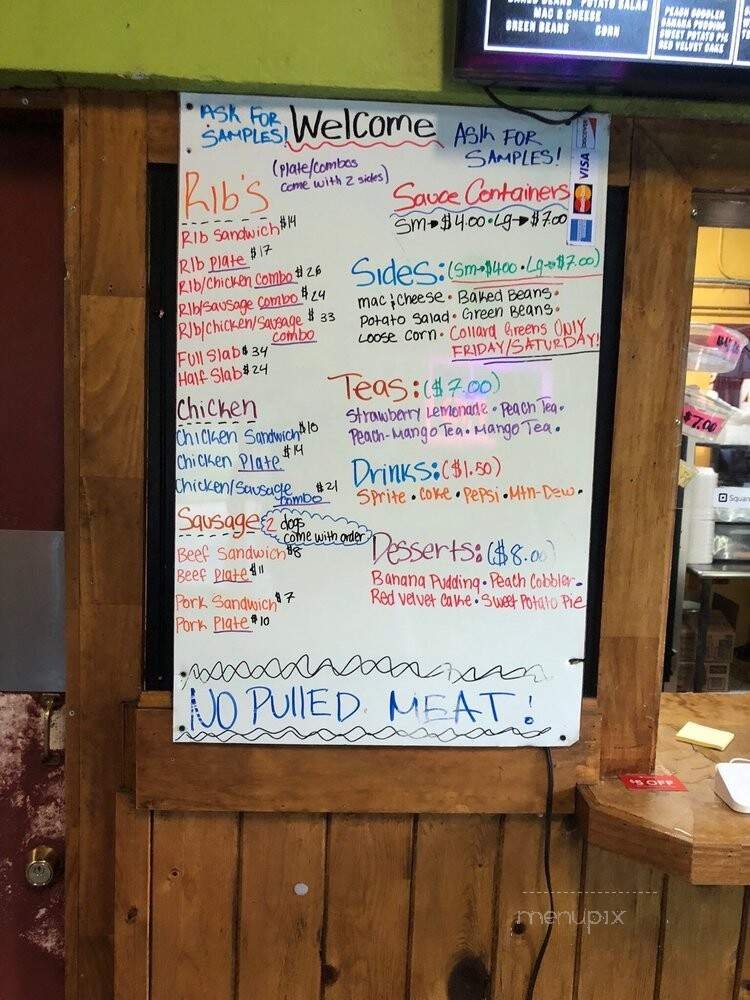 BAKED BEANS POTATO SALAD
MAC & CHEESE
GREEN BEANS CORN
PEACH COBBLER
BANANA PUDDING
SWEET POTATO PIE
RED VELVET CAKE
ASK FOR SAMPLES!
Welcome
ASK FOR SAMPLES!
DISCOVER
VISA
(Plate/combos
come with 2 sides)
RIb's
RIb Sandwich $14
RIb Plate $17
RIb/chicken combo $26
RIb/sausage combo $24
RIb/chicken/sausage $33
combo
Full Slab $34
Half Slab $24
Chicken
Chicken Sandwich $10
Chicken Plate $14
Chicken/Sausage $21
combo
Sausage 2 dogs
come with order
Beef Sandwich $8
Beef Plate $11
Pork Sandwich $7
Pork Plate $10
Sauce Containers
Sm→$4.00•Lg→$7.00
Sides: (Sm→$400•Lg→$7.00)
mac & cheese • Baked Beans •
Potato Salad • Green Beans •
Loose Corn • Collard Greens ONLY
FRIDAY/SATURDAY!
Teas: ($7.00)
Strawberry Lemonade • Peach Tea •
Peach-Mango Tea • Mango Tea •
Drinks: ($1.50)
Sprite • Coke • Pepsi • Mtn-Dew •
Desserts: ($8.00)
Banana Pudding • Peach Cobbler •
Red Velvet Cake • Sweet Potato Pie
NO PULLED MEAT!
$7.00
Squar
$5 OFF
menupix